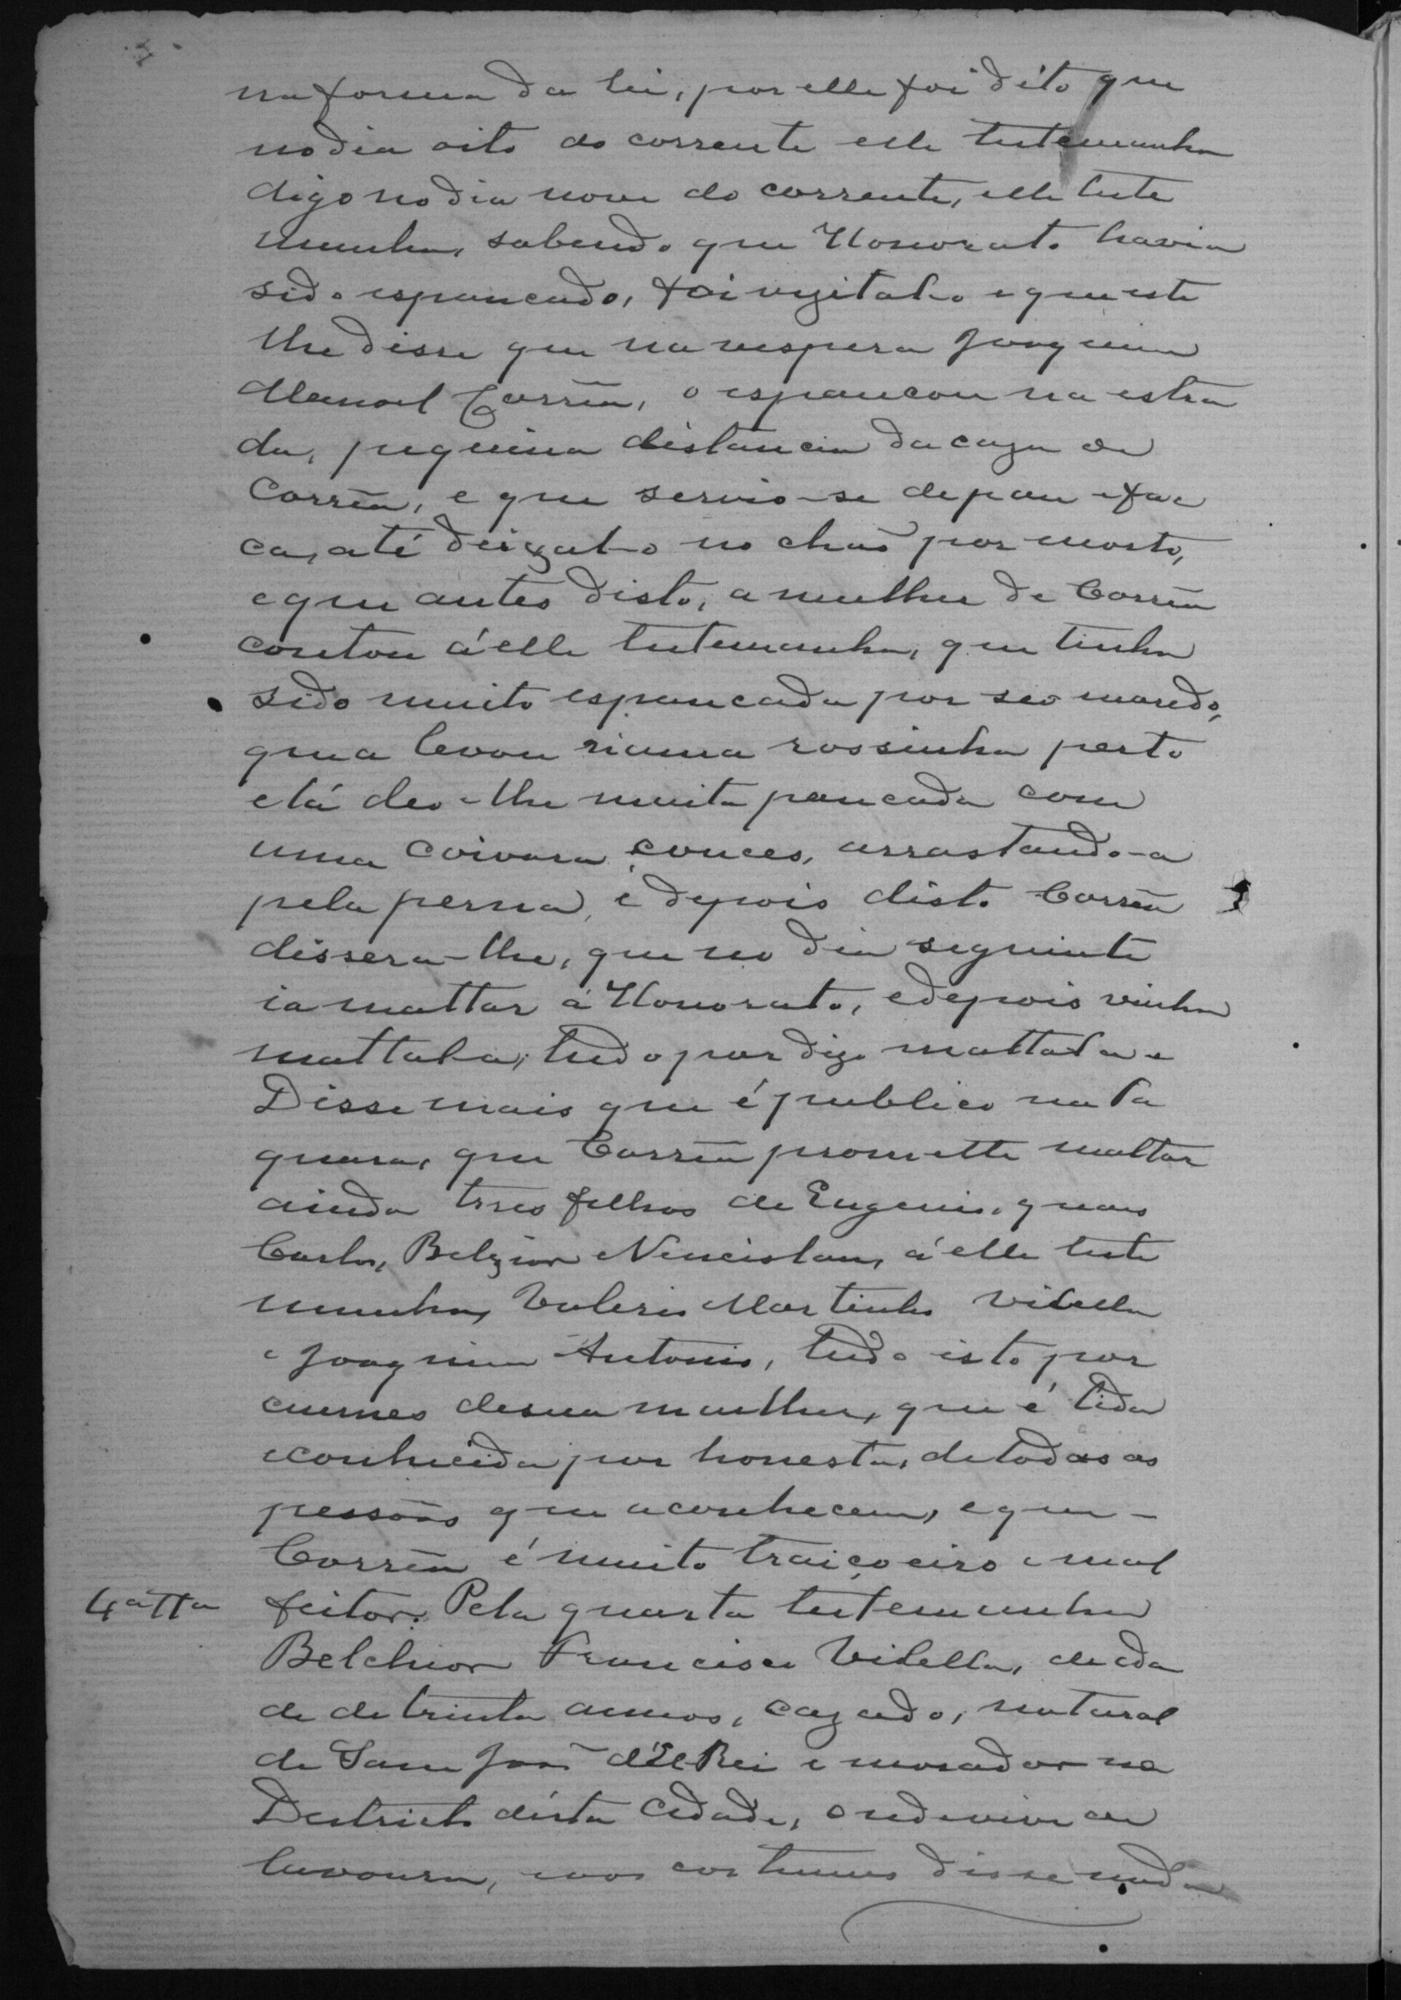 na forma da lei, por elle foi dito que
no dia oito do corrente elle testemunha
digo no dia nove do corrente, elle teste
munha, sabendo que Honorato havia
sido espancado, foi vizital-o e que este
lhe disse que na vespera Joaquim
Manoel Corrêa, o espancou na estra
da, pequena distancia da caza de
Corrêa, e que servio-se de pau e fac
ca, até deixal-o no chaõ por morto,
e que antes disto, a mulher de Corrêa
contou á elle testemunha, que tinha
sido muito espancada por seo marido,
que a levou n'uma rossinha perto
e lá deo-lhe muita pancada com
uma coivara, couces, arrastando-a
pela perna, e depois disto Corrêa
dissera-lhe, que no dia seguinte
ia mattar á Honorato, e depois vinha
mattala, tudo por digo mattala e
Disse mais que é publico na Ta
quara, que Corrêa promette mattar
ainda tres filhos de Eugenio, quaes
Carlos, Belxior e Venceslau, á elle teste
munha, Valerio Martinho Vilella
e Joaquim Antonio, tudo isto por
ciumes de sua mulher, que é tida
e conhecida por honesta, de todas as
pessôas que a conhecem, e que -
Corrêa é muito traiçoeiro e mal
4ª TTª feitor. Pela quarta testemunha
Belchior Francisco Vilella, de eda
de de trinta annos, cazado, natural
de Sam Joaõ d'El Rei e morador no
Destricto désta Cidade, onde vive de
lavoura, e aos costumes disse nada